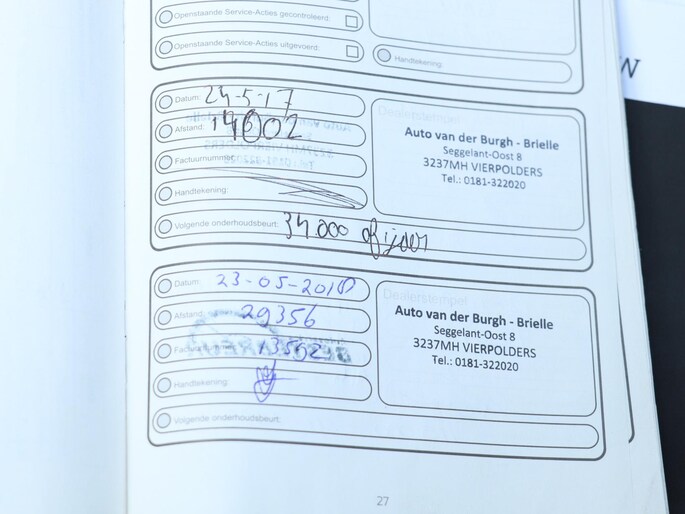 Openstaande Service-Acties gecontroleerd:
Openstaande Service-Acties uitgevoerd:
Handtekening:
Datum: 24-5-17
Afstand: 14002
Factuurnummer:
Handtekening:
Volgende onderhoudsbeurt: 34.000 of
Dealerstempel
Auto van der Burgh - Brielle
Seggelant-Oost 8
3237MH VIERPOLDERS
Tel.: 0181-322020
Datum: 23-05-2018
Afstand: 29356
13502
Handtekening:
Volgende onderhoudsbeurt:
Dealerstempel
Auto van der Burgh - Brielle
Seggelant-Oost 8
3237MH VIERPOLDERS
Tel.: 0181-322020
27